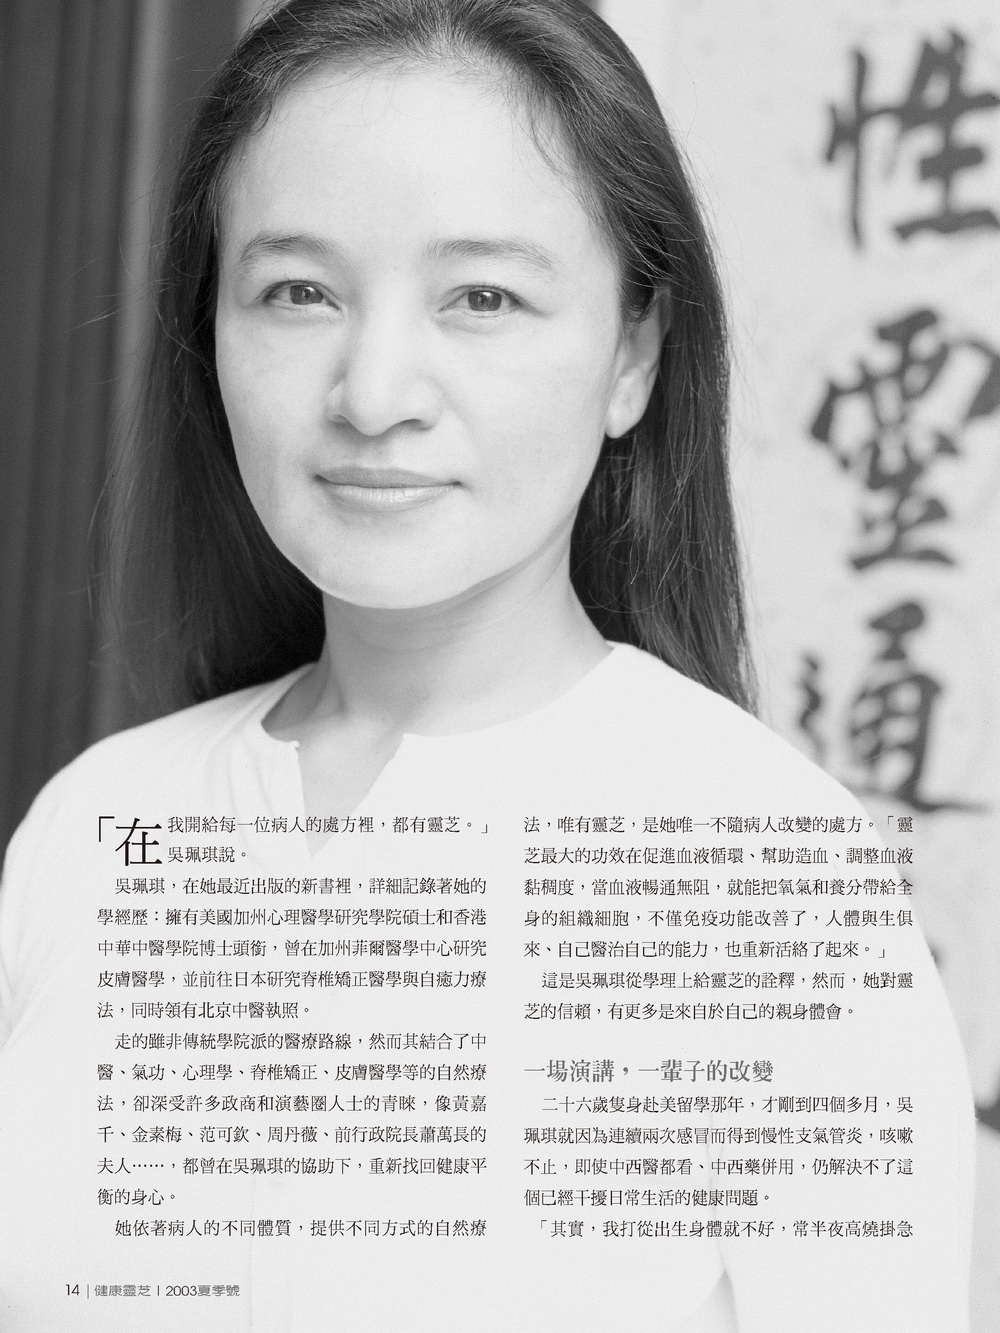 性
靈
通
「在我開給每一位病人的處方裡，都有靈芝。」
吳珮琪說。
吳珮琪，在她最近出版的新書裡，詳細記錄著她的
學經歷：擁有美國加州心理醫學研究學院碩士和香港
中華中醫學院博士頭銜，曾在加州菲爾醫學中心研究
皮膚醫學，並前往日本研究脊椎矯正醫學與自癒力療
法，同時領有北京中醫執照。
走的雖非傳統學院派的醫療路線，然而其結合了中
醫、氣功、心理學、脊椎矯正、皮膚醫學等的自然療
法，卻深受許多政商和演藝圈人士的青睞，像黃嘉
千、金素梅、范可欽、周丹薇、前行政院長蕭萬長的
夫人……，都曾在吳珮琪的協助下，重新找回健康平
衡的身心。
她依著病人的不同體質，提供不同方式的自然療
法，唯有靈芝，是她唯一不隨病人改變的處方。「靈
芝最大的功效在促進血液循環、幫助造血、調整血液
黏稠度，當血液暢通無阻，就能把氧氣和養分帶給全
身的組織細胞，不僅免疫功能改善了，人體與生俱
來、自己醫治自己的能力，也重新活絡了起來。」
這是吳珮琪從學理上給靈芝的詮釋，然而，她對靈
芝的信賴，有更多是來自於自己的親身體會。
一場演講，一輩子的改變
二十六歲隻身赴美留學那年，才剛到四個多月，吳
珮琪就因為連續兩次感冒而得到慢性支氣管炎，咳嗽
不止，即使中西醫都看、中西藥併用，仍解決不了這
個已經干擾日常生活的健康問題。
「其實，我打從出生身體就不好，常半夜高燒掛急
14｜健康靈芝｜2003夏季號